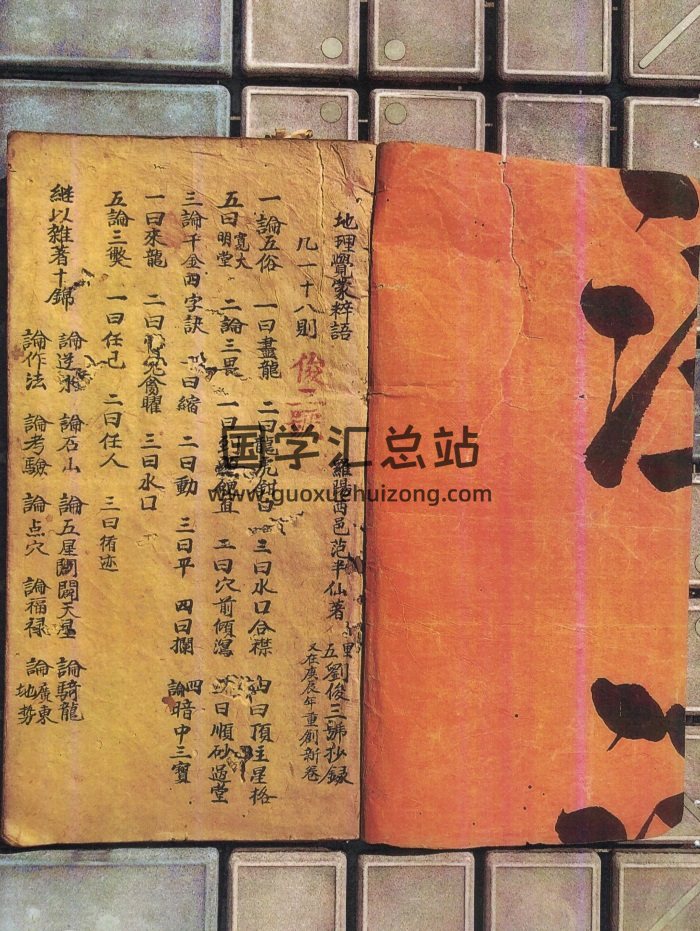 地理覺蒙粹語
羅陽西邑范半仙著
里五劉俊三號抄録
又在庚辰年重創新卷
凡一十八則
俊三
一論五俗 一曰盡龍 二曰龍虎鉗口 三曰水口合襟 四曰頂主星格
五曰明堂寬大 二論三畏 一曰 二曰穴前傾瀉 三曰順砂過堂
三論千金四字訣 一曰縮 二曰動 三曰平 四曰攔 四論暗中三寶
一曰來龍 二曰 禽曜 三曰水口
五論三獘 一曰任己 二曰任人 三曰循迹
継以雜著十錦
論逆水 論石山 論五星閗闘天星 論騎龍
論作法 論考驗 論点穴 論福禄 論廣東地勢
国学汇总站
www.guoxuehuizong.com